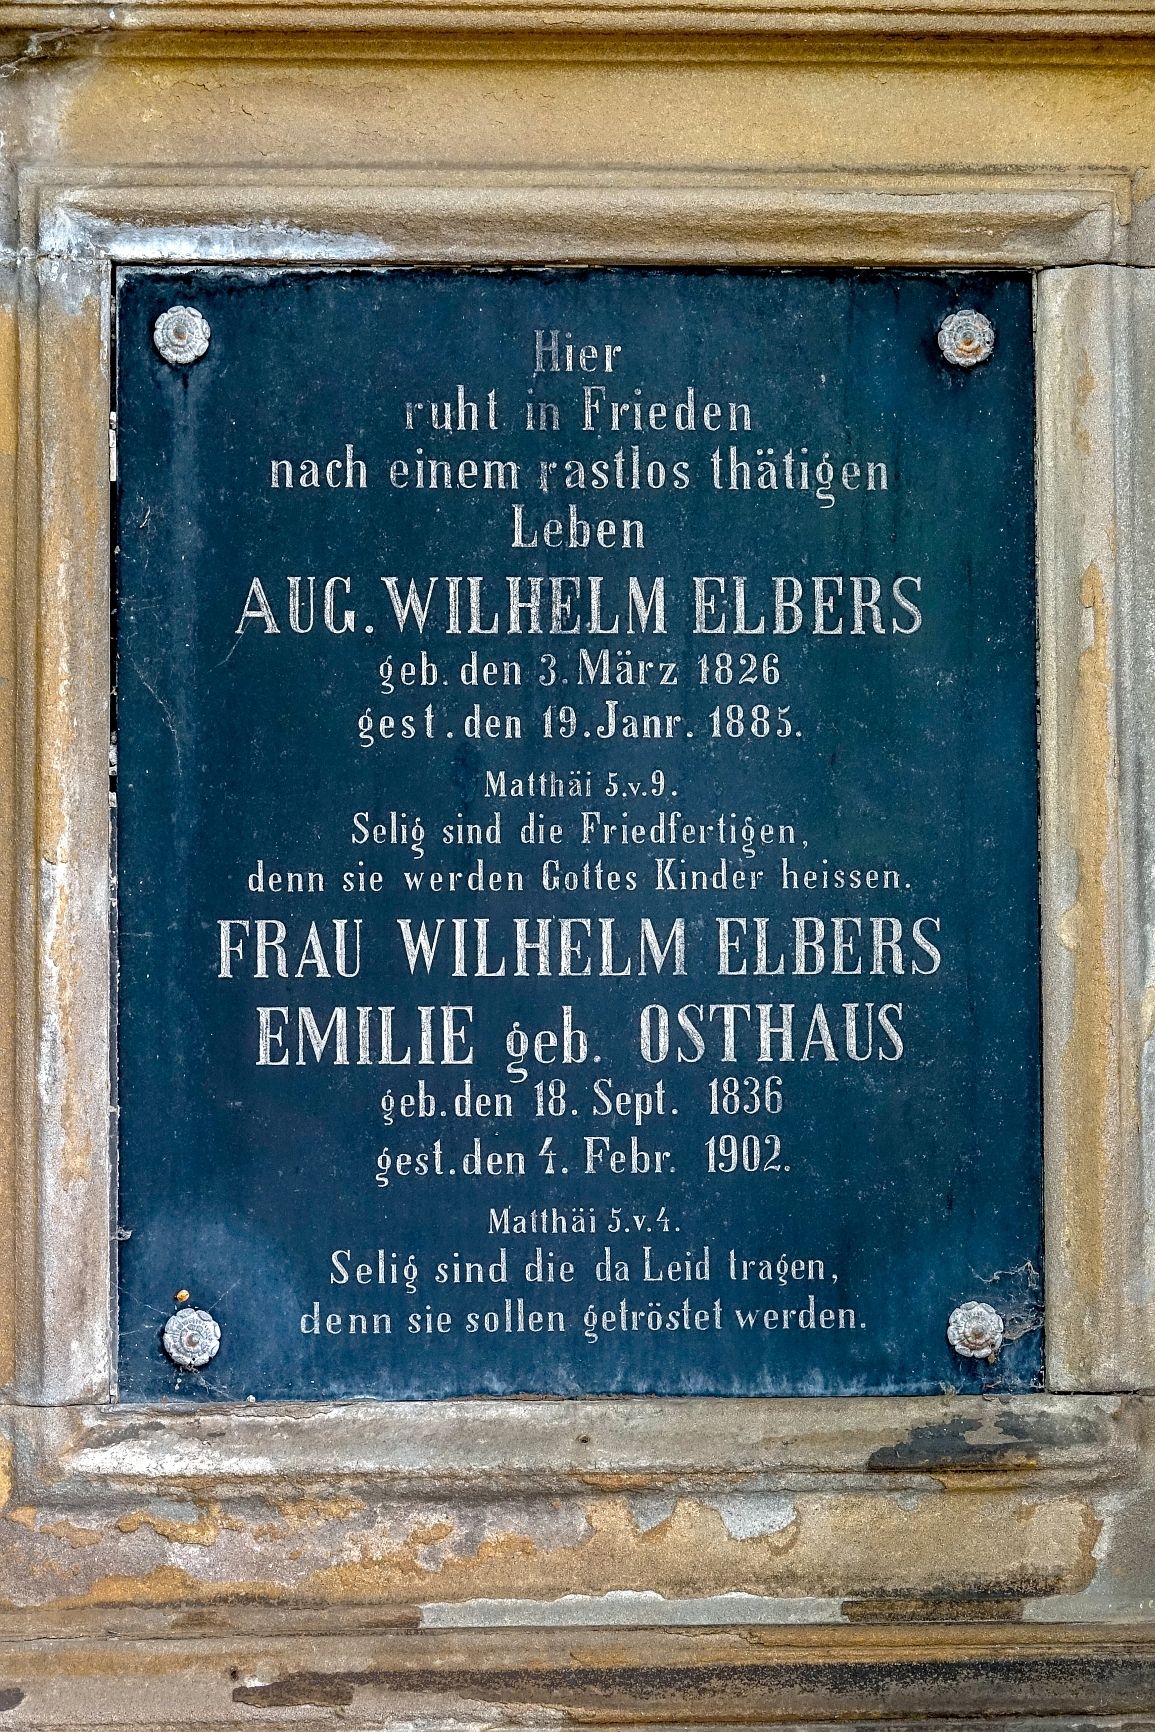 Hier
ruht in Frieden
nach einem rastlos thätigen
Leben
AUG. WILHELM ELBERS
geb. den 3. März 1826
gest. den 19. Janr. 1885.
Matthäi 5.v.9.
Selig sind die Friedfertigen,
denn sie werden Gottes Kinder heissen.
FRAU WILHELM ELBERS
EMILIE geb. OSTHAUS
geb. den 18. Sept. 1836
gest. den 4. Febr. 1902.
Matthäi 5.v.4.
Selig sind die da Leid tragen,
denn sie sollen getröstet werden.